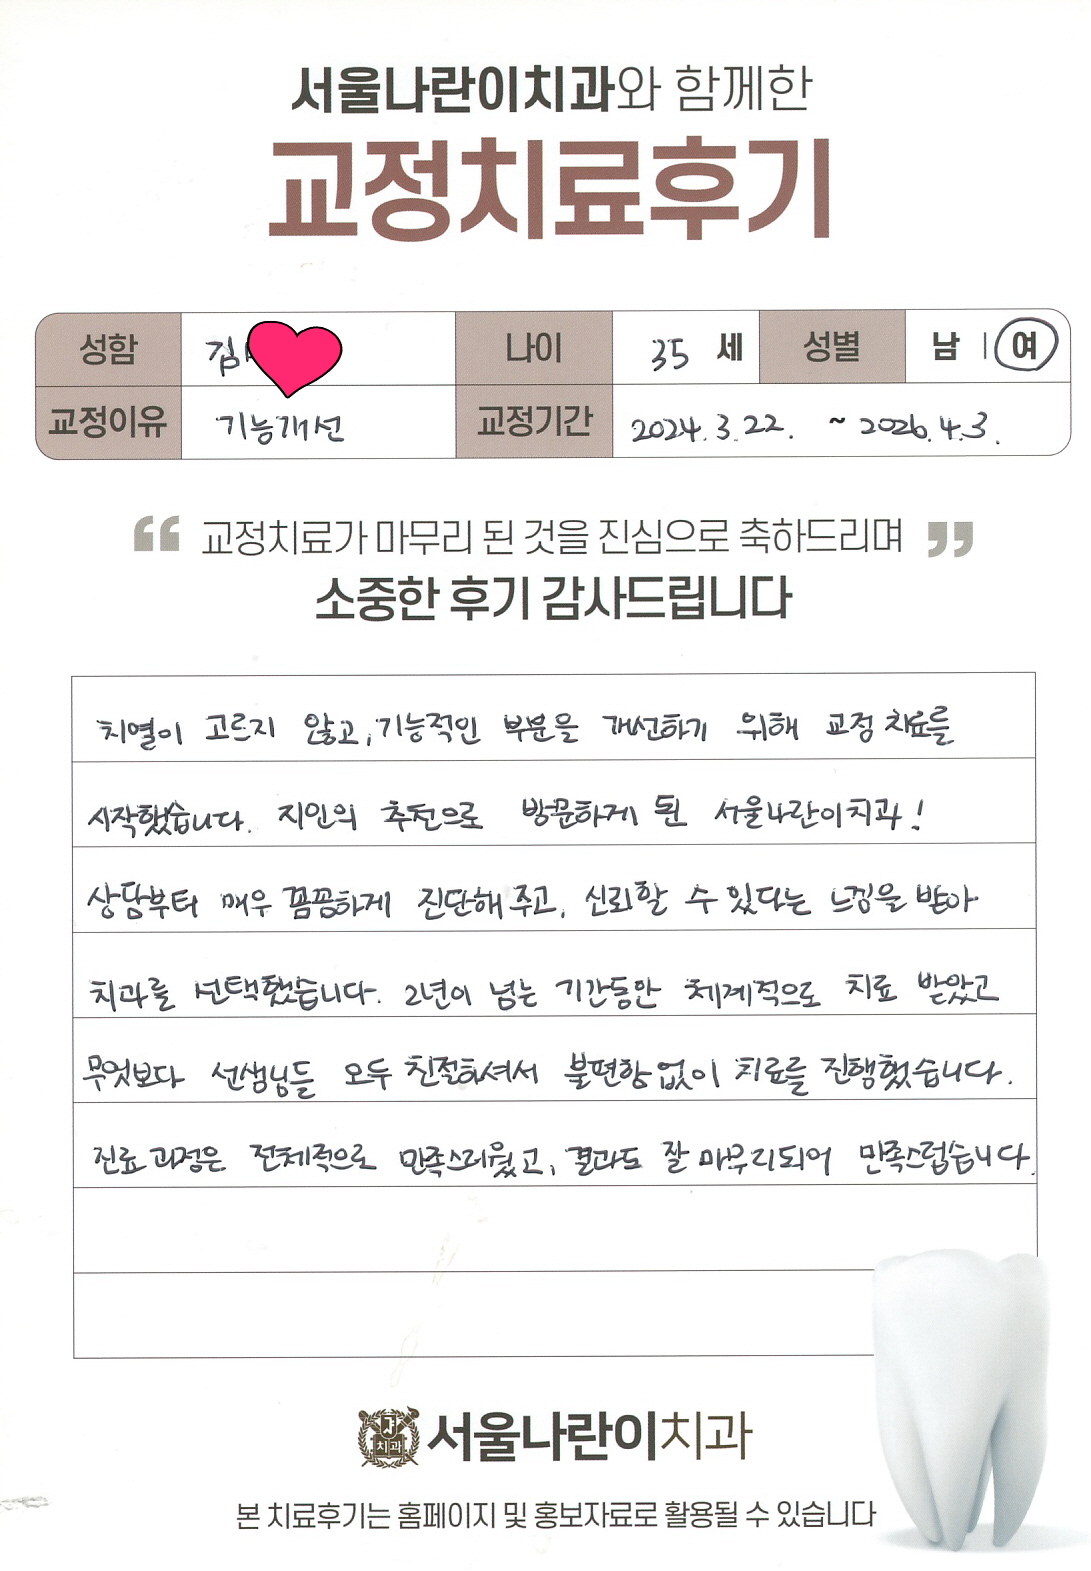 서울나란이치과와 함께한
교정치료후기
성함 김 나이 35 세 성별 남 | 여
교정이유 기능개선 교정기간 2024.3.22. ~ 2026.4.3.
“ 교정치료가 마무리 된 것을 진심으로 축하드리며 ”
소중한 후기 감사드립니다
치열이 고르지 않고, 기능적인 부분을 개선하기 위해 교정 치료를
시작했습니다. 지인의 추천으로 방문하게 된 서울나란이치과!
상담부터 매우 꼼꼼하게 진단해 주고, 신뢰할 수 있다는 느낌을 받아
치과를 선택했습니다. 2년이 넘는 기간동안 체계적으로 치료 받았고
무엇보다 선생님들 모두 친절하셔서 불편함 없이 치료를 진행했습니다.
진료 과정은 전체적으로 만족스러웠고, 결과도 잘 마무리되어 만족스럽습니다.
치과 서울나란이치과
본 치료후기는 홈페이지 및 홍보자료로 활용될 수 있습니다